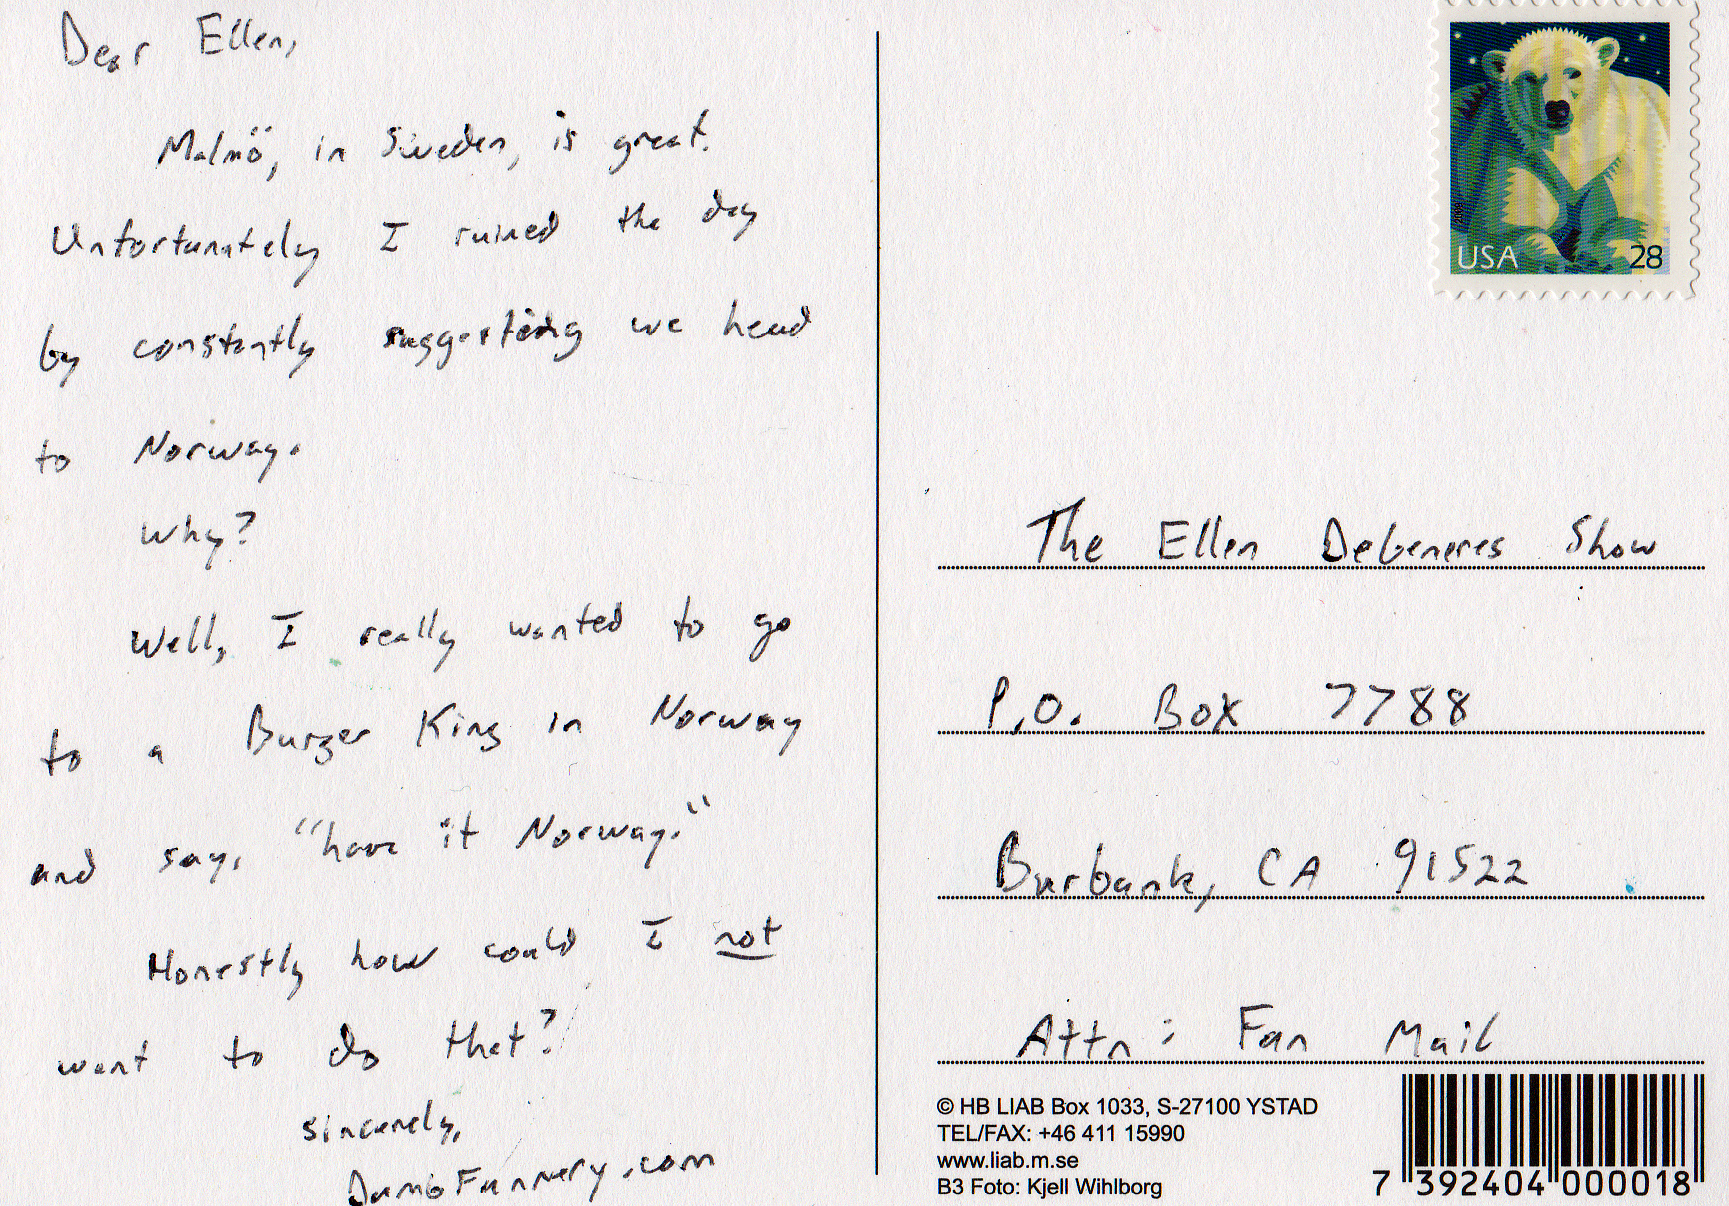 Dear Ellen,
Malmö, in Sweden, is great.
Unfortunately I ruined the day
by constantly suggesting we head
to Norway.
Why?
Well, I really wanted to go
to a Burger King in Norway
and say, "have it Norway."
Honestly how could I not
want to do that?
sincerely,
DumbFunnery.com
USA 28
The Ellen DeGeneres Show
P.O. Box 7788
Burbank, CA 91522
Attn: Fan Mail
© HB LIAB Box 1033, S-27100 YSTAD
TEL/FAX: +46 411 15990
www.liab.m.se
B3 Foto: Kjell Wihlborg
7 392404 000018